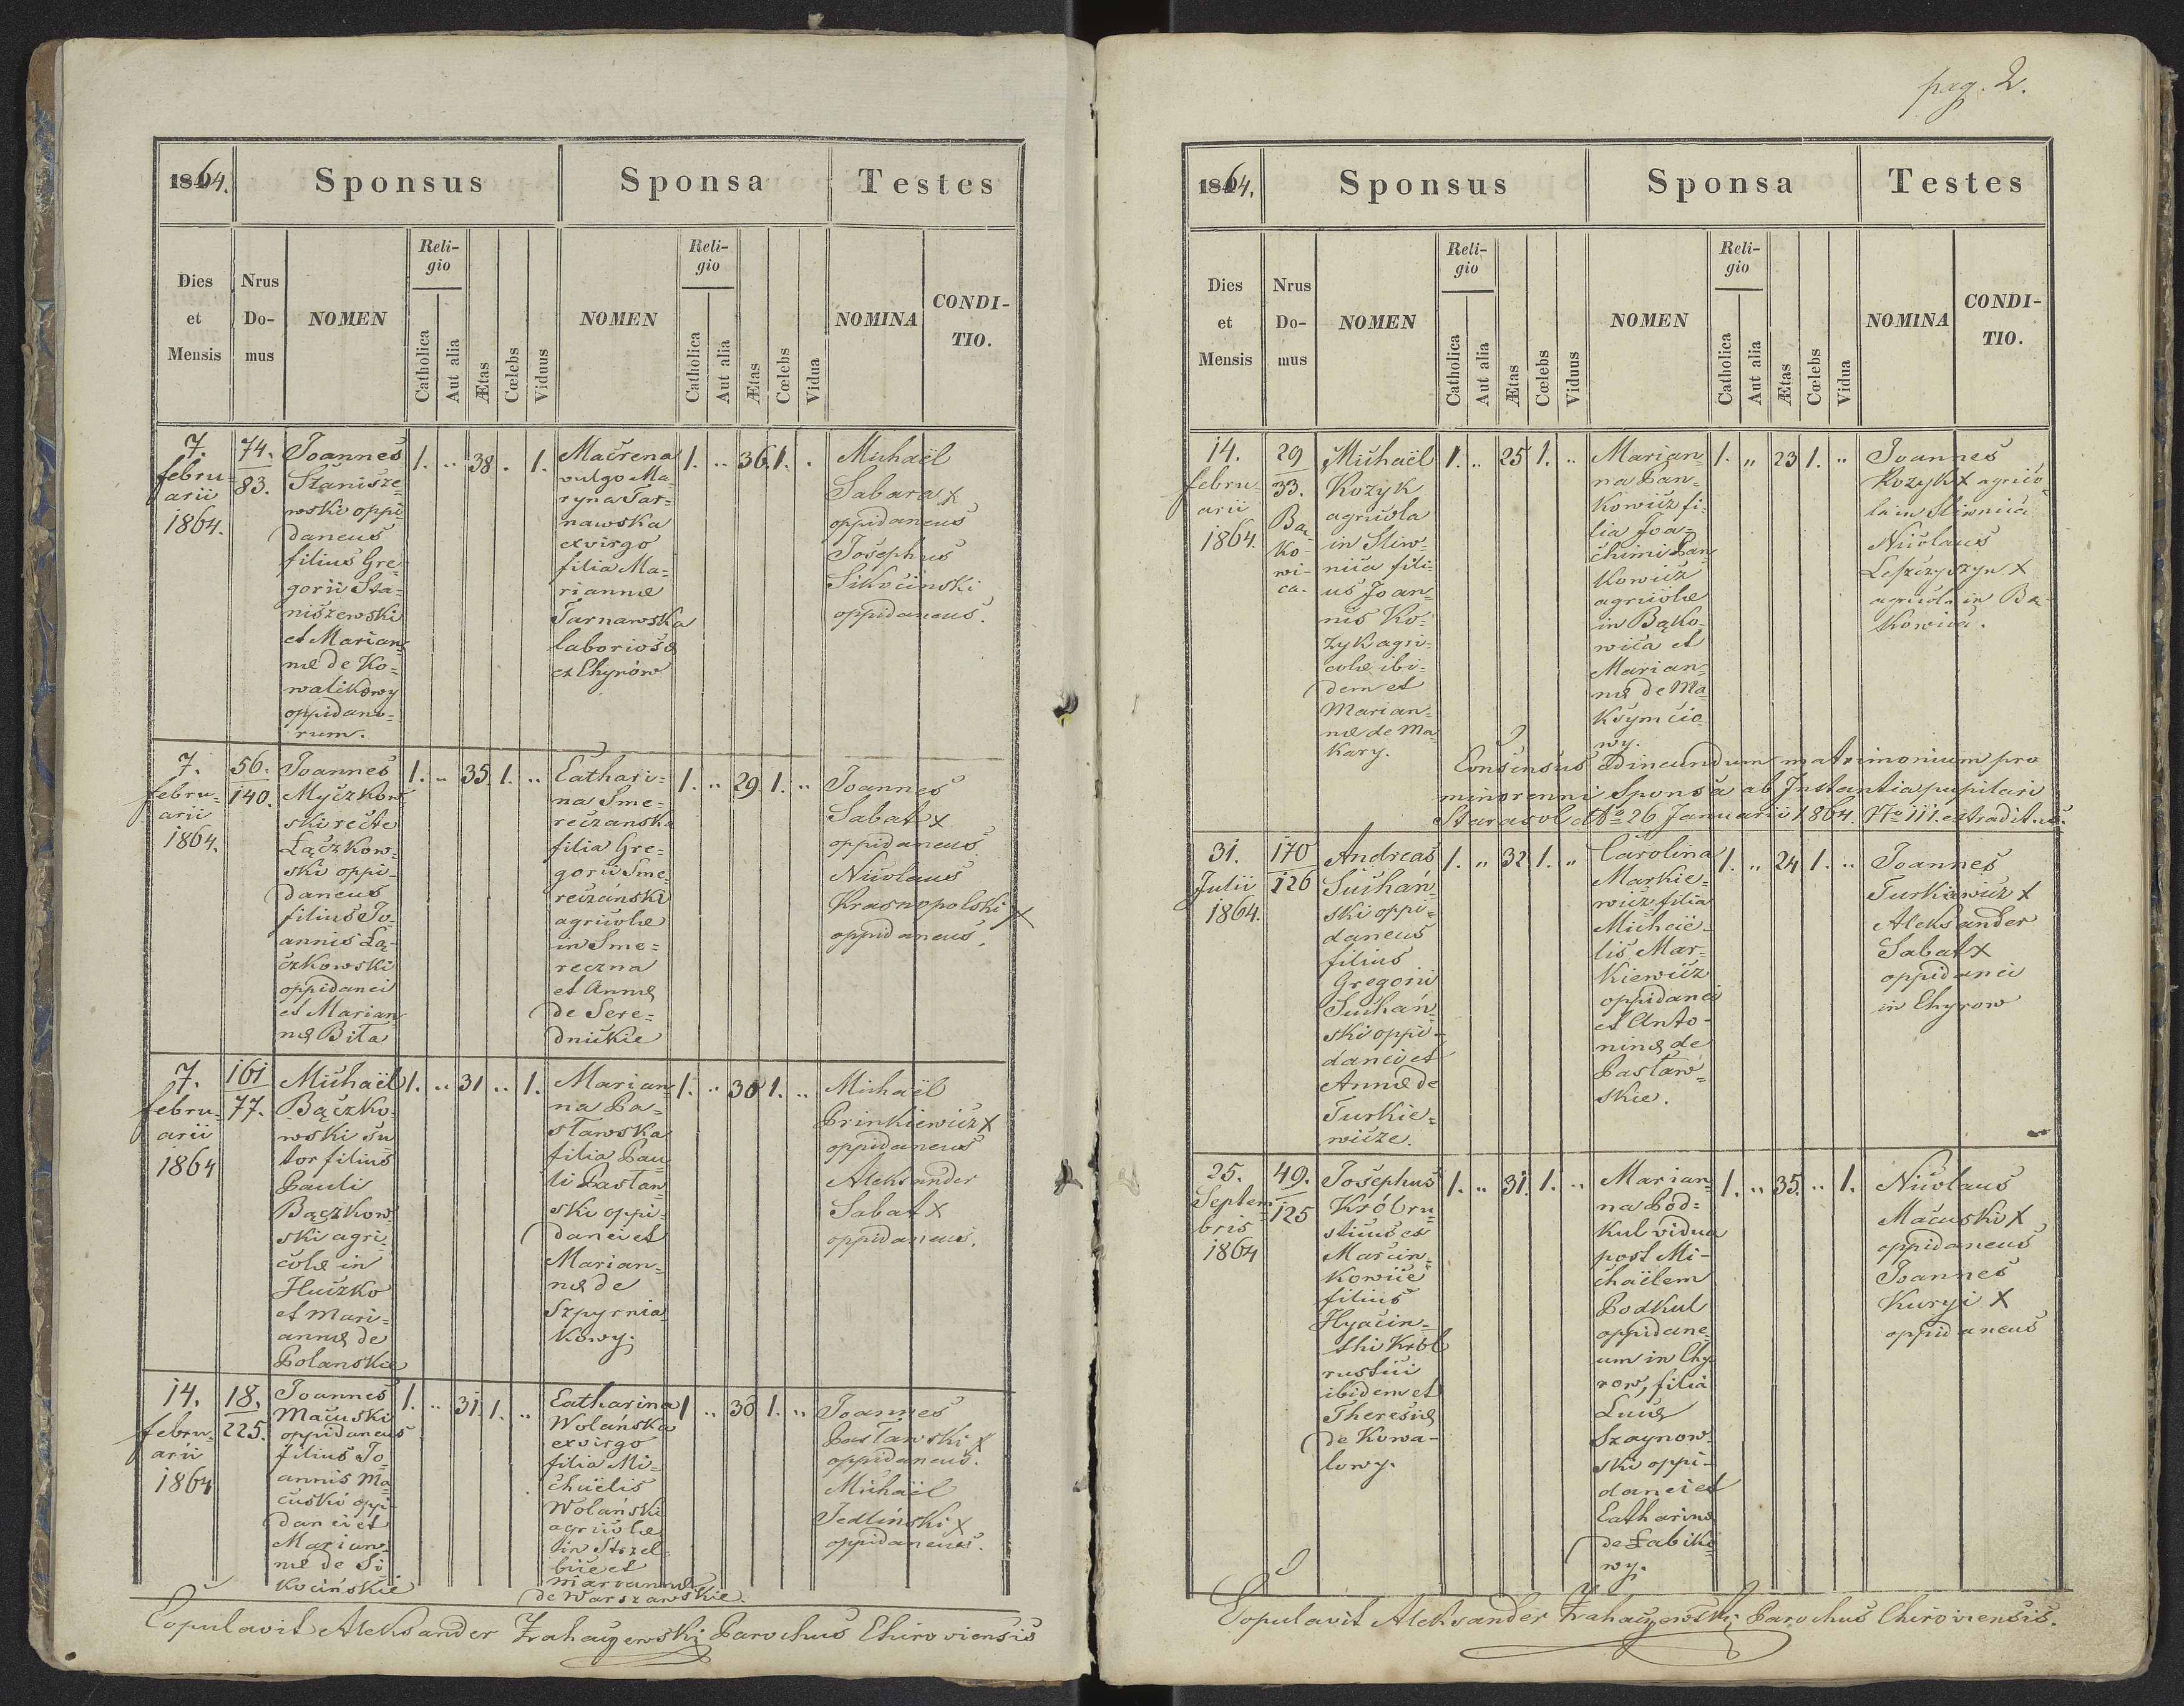 1864.
Sponsus
Sponsa
Testes
Dies
et
Mensis
Nrus
Do-
mus
NOMEN
Reli-
gio
Catholica
Aut alia
Ætas
Cœlebs
Viduus
NOMEN
Reli-
gio
Catholica
Aut alia
Ætas
Cœlebs
Vidua
NOMINA
CONDI-
TIO.
7.
febru=
arii
1864.
74.
83.
Joannes
Stanisze=
wski oppi
daneus
filius Gre=
gorii Sta=
niszewski
et Marian=
næ de Ko=
walikowy
oppidano=
rum.
1. „ 38 . 1.
Macrena
vulgo Ma=
ryna Tar=
nawska
ex virgo
filia Ma=
riannæ
Tarnawska
laboriosæ
ex Chyrów
1. „ 36 1. .
Michaël
Sabara X
oppidaneus
Josephus
Sikociński
oppidaneus.
7.
febru=
arii
1864.
56.
140.
Joannes
Myczkow
ski recte
Łączkow=
ski oppi=
daneus
filius Jo=
annis Łą=
czkowski
oppidanei
et Marian
næ Bita
1. „ 35. 1. „
Cathari=
na Sme=
reczanska
filia Gre=
gorii Sme=
reczański
agricolæ
in Sme=
reczna
et Annæ
de Sere=
dnickie
1. „ 29. 1. „
Joannes
Sabat X
oppidaneus
Nicolaus
Krasnopolski X
oppidaneus.
7.
febru=
arii
1864
161
77.
Michaël
Bączko=
wski su
tor filius
Pauli
Bączkow=
ski agri=
colæ in
Huczko
et Mari=
annæ de
Polanskie
1. „ 31 „ 1.
Marian=
na Pa=
sławska
filia Pau
li Pasław
ski oppi=
danei et
Marian=
næ de
Szpyrnia
kowy.
1. „ 30 1. „
Michaël
Prinkiewicz X
oppidaneus
Aleksander
Sabat X
oppidaneus.
14.
febru=
arii
1864
18.
225.
Joannes
Macuski
oppidaneus
filius Jo=
annis Ma=
cuski opp=
danei et
Marian=
næ de Si
kocińskie
1. „ 31. 1. „
Catharina
Wolańska
ex virgo
filia Mi=
chaëlis
Wolański
agricolæ
in Strzel=
bice et
Mariannæ
de Warszawskie.
1 „ 30 1. „
Joannes
Pasławski X
oppidaneus.
Michaël
Jedliński X
oppidaneus.
Copulavit Aleksander Parochus Chiroviensis
pag. 2.
1864.
Sponsus
Sponsa
Testes
Dies
et
Mensis
Nrus
Do-
mus
NOMEN
Reli-
gio
Catholica
Aut alia
Ætas
Cœlebs
Viduus
NOMEN
Reli-
gio
Catholica
Aut alia
Ætas
Cœlebs
Vidua
NOMINA
CONDI-
TIO.
14.
febru=
arii
1864.
29
33.
Bą
ko-
wi-
ca.
Michaël
Kozyk
agricola
in Sliw=
nica fili=
us Joan=
nis Ko=
zyk agri=
colæ ibi=
dem et
Marian=
næ de Ma
kary.
1. „ 25 1. „
Marian=
na Pan=
kowicz fi=
lia Joa=
chimi Pan
kowicz
agricolæ
in Bąko=
wica et
Marian=
næ de Ma
ksymcio
wy.
1. „ 23 1. „
Joannes
Kozyk X agrico
la in Sliwnica
Nicolaus
Leszczyszyn X
agricola in Bą
kowica.
Consensus ad ineundum matrimonium pro
minorenni Sponsa ab Instantia pupilari
Starasol dtto 26 Januarii 1864. No 111. extraditus.
31.
Julii
1864.
170
126
Andreas
Suchań=
ski oppi=
daneus
filius
Gregorii
Suchań=
ski oppi=
danei et
Annæ de
Turkie=
wicze.
1. „ 32 1. „
Carolina
Markie=
wicz filia
Michaë=
lis Mar=
kiewicz
oppidanei
et Anto=
ninæ de
Pasław=
skie.
1. „ 24 1. „
Joannes
Turkiewicz X
Aleksander
Sabat X
oppidanei
in Chyrow
25.
Septem
bris
1864
49.
125
Josephus
Król ru=
sticus ex
Marcin=
kowice
filius
Hyacin=
thi Król
rustici
ibidem et
Theresiæ
de Kowa=
lowy.
1. „ 31. 1. „
Marian=
na Pod=
kul vidua
post Mi=
chaëlem
Podkul
oppidane=
um in Chy
row, filia
Lucæ
Szaynow=
ski oppi=
danei et
Catharinæ
de Łabiko
wy.
1. „ 35. „ 1.
Nicolaus
Macuski X
oppidaneus
Joannes
Kuryi X
oppidaneus
Copulavit Aleksander Parochus Chiroviensis.